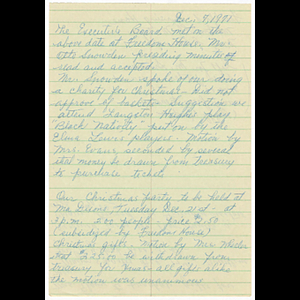 Dec. 9, 1971
The Executive Board met on the
above date at Freedom House, Mr.
Otto Snowden presiding minutes of
read and accepted.
Mr. Snowden spoke of our doing
a charity for Christmas - Did not
approve of baskets. Suggestion we
attend Langston Hughes play
"Black Nativity" put on by the
Elma Lewis players. Motion by
Mrs. Evans seconded by several
that money be drawn from treasury
to purchase tickets
Our Christmas party to be held at
Ma Dixons, Tuesday, Dec. 21st - at
P.M. 200 people. Price $2.50
(subsidized by Freedom House)
Christmas gifts. Motion by Mrs.
that $25.00 be withdrawn from
treasury for - all gifts alike
the motion was unanimous